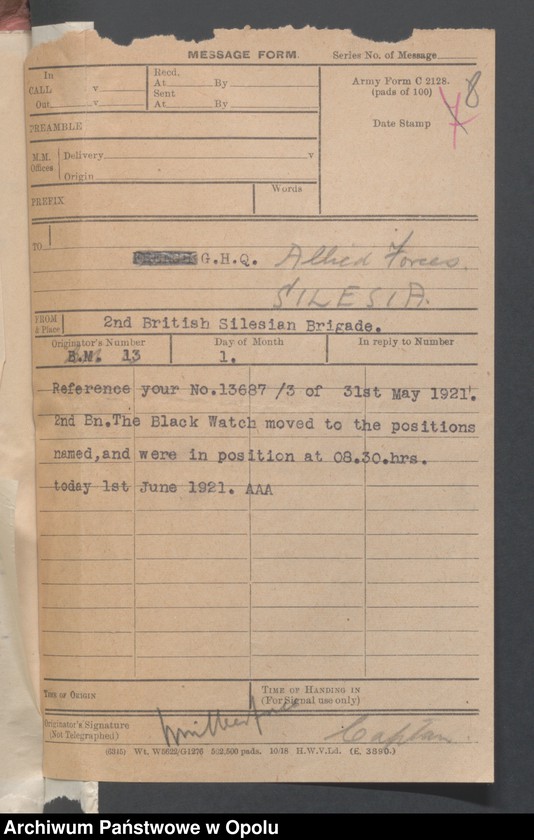 MESSAGE FORM.
Series No. of Message
In
CALL v.
Out v.
Recd.
At By
Sent
At By
Army Form C 2128.
(pads of 100)
8
Date Stamp
PREAMBLE
M.M.
Offices
Delivery v
Origin
PREFIX
Words
TO
G.H.Q. Allied Forces.
SILESIA.
FROM
& Place
2nd British Silesian Brigade.
Originator's Number
Day of Month
In reply to Number
B.M. 13
1.
Reference your No.13687 /3 of 31st May 1921.
2nd Bn.The Black Watch moved to the positions
named,and were in position at 08.30.hrs.
today 1st June 1921. AAA
TIME OF ORIGIN
TIME OF HANDING IN
(For Signal use only)
Originator's Signature
(Not Telegraphed)
Captain.
(6345) Wt. W5622/G1276 502,500 pads. 10/18 H.W.V.Ld. (E. 3880.)
Archiwum Państwowe w Opolu